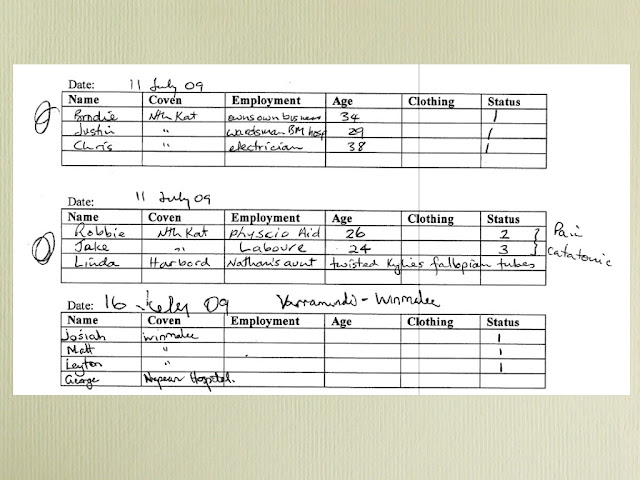 Date: 11 July 09
Name Coven Employment Age Clothing Status
Brodie Nth Kat owns own business 34 1
Justin " wardsman BM hosp 29 1
Chris " electrician 38 1
Date: 11 July 09
Name Coven Employment Age Clothing Status
Robbie Nth Kat physcio Aid 26 2 } Pain
Jake " Laboure 24 3 } catatonic
Linda Harbord Nathan's aunt twisted Kylies fallopian tubes
Date: 16 July 09 Yarramundi - Winmalee
Name Coven Employment Age Clothing Status
Josiah winmalee 1
Matt " 1
Leyton " 1
George Nepean Hospital.